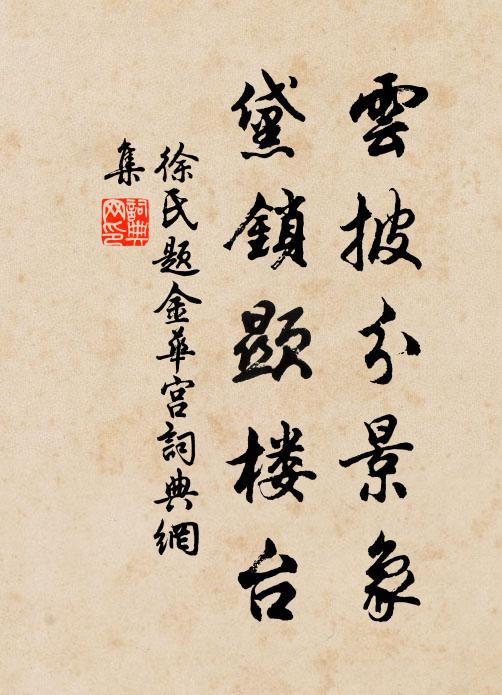 雲披分景象
黛鎖顕楼台
徐氏題金華宮詞典網
集
詞典
网印